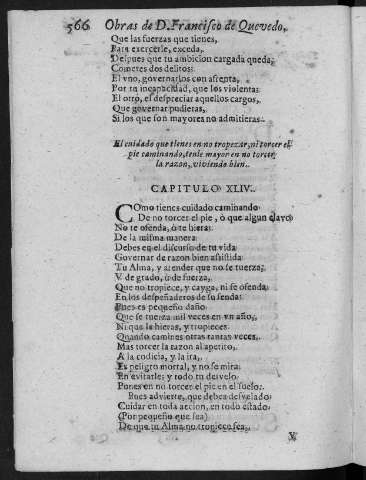 566 Obras de D. Francisco de Quevedo,
Que las fuerzas que tienes,
Para exercerle, exceda,
Despues que tu ambicion cargada queda,
Cometes dos delitos:
El vno, governarlos con afrenta,
Por tu incapacidad, que los violenta:
El otro, es despreciar aquellos cargos,
Que governar pudieras,
Si los que son mayores no admitieras.
El cuidado que tienes en no tropezar, ni torcer el
pie caminando, tenle mayor en no torcer
la razon, viviendo bien.
CAPITULO XLIV.
COmo tienes cuidado caminando
De no torcer el pie, ò que algun clavo
No te ofenda, ò te hiera:
De la misma manera
Debes en el discurso de tu vida
Governar de razon bien assistida
Tu Alma, y atender que no se tuerza,
V. de grado, ù de fuerza,
Que no tropiece, y cayga, ni se ofenda
En los despeñaderos de su senda:
Pues es pequeño daño
Que se tuerza mil veces en vn año,
Ni que te hieras, y tropieces
Quando camines otras tantas veces,
Mas torcer la razon al apetito,
A la codicia, y la ira,
Es peligro mortal, y no se mira
En evitarle; y todo tu desvelo
Pones en no torcer el pie en el suelo.
Pues advierte, que debes desvelado
Cuidar en toda accion, en todo estado
(Por pequeño que sea)
De que tu Alma no tropiece sea,
V